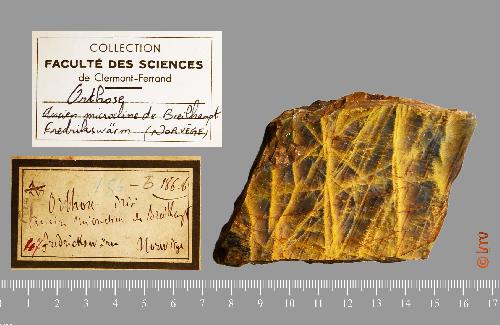 COLLECTION
FACULTÉ DES SCIENCES
de Clermont-Ferrand
Orthose
Ancien microcline de Breithaupt
Fredrikswärm (NORVEGE)
186-6
Orthose
Ancien de Breithaupt
147 Fredrickswärn Norwège
0 1 2 3 4 5 6 7 8 9 10 11 12 13 14 15 16 17